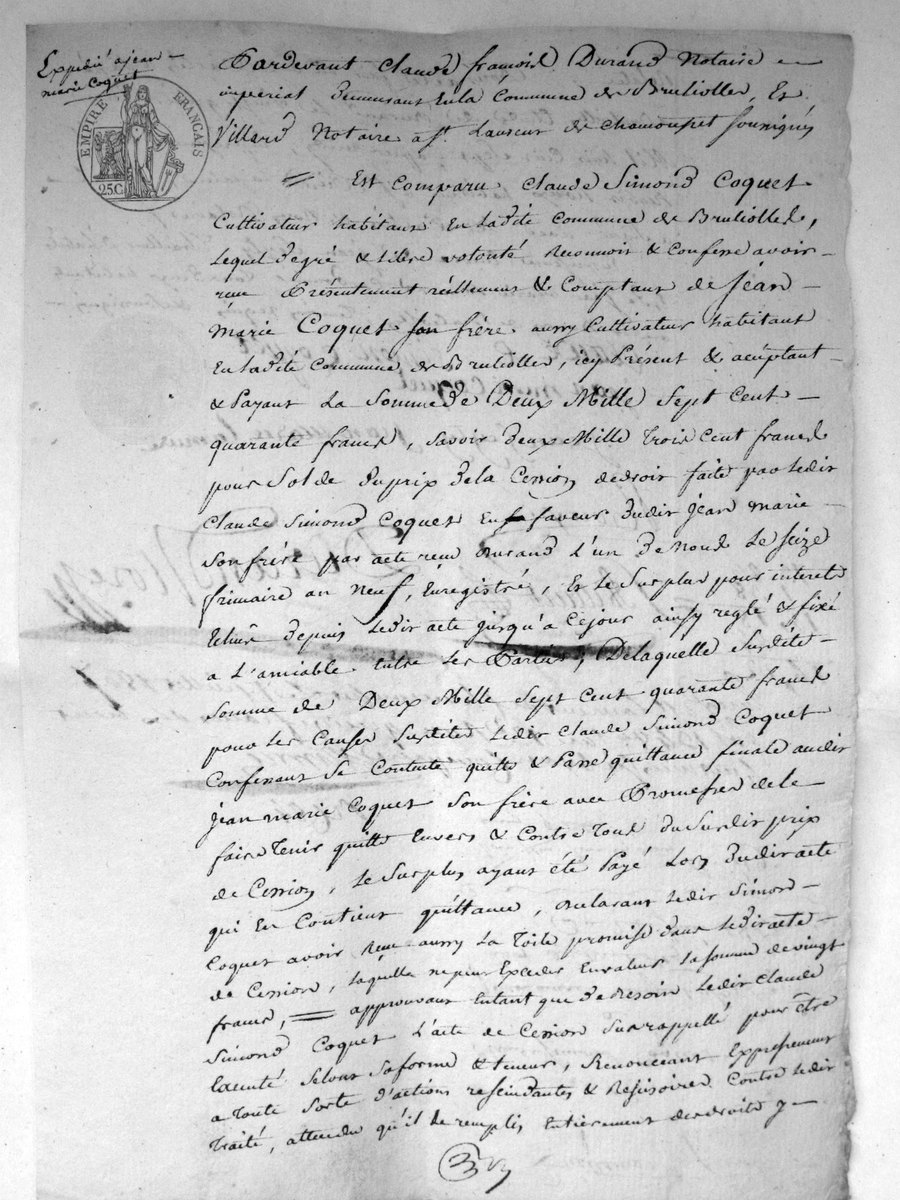 Expedié a jean
marie Coquet
EMPIRE FRANÇAIS
25C.
Pardevant Claude françois Durand Notaire
imperial demeurant En la Commune de Brulioles, Et
Villard Notaire a St. Laurent de Chamousset Soussignés
Est comparu Claude Simond Coquet
Cultivateur habitant En ladite Commune de Brulioles,
Lequel de gré & libre volonté Reconnoit & Confesse avoir
reçu Présentement réellement & Comptant de jean
marie Coquet son frère aussy Cultivateur habitant
En ladite Commune de Brulioles, icy Présent & acceptant
& Payant La Somme de Deux Mille Sept Cent
quarante francs, savoir deux Mille trois Cent francs
pour Solde du prix de la Cession de droit faite par ledit
Claude Simond Coquet En faveur dudit jean marie
son frère par acte reçu Durand L'un de Nous Le Seize
frimaire an Neuf, Enregistré, Et le Surplus pour interets
Echus depuis ledit acte jusqu'a Cejour ainsy reglé & fixé
a L'amiable Entre Les Parties, De laquelle Susdite
Somme de Deux Mille Sept Cent quarante francs
pour les Causes Susdites ledit Claude Simond Coquet
Confessant Se Contente quitte & Passe quittance finale audit
jean marie Coquet son frère avec Promesse de le
faire tenir quitte Envers & Contre Tous du Susdit prix
de Cession, Le Surplus ayant été Payé Lors dudit acte
qui En Contient quittance, Declarant ledit Simond
Coquet avoir Reçu aussy La Toile promise dans ledit acte
de Cession, laquelle ne peut Exceder En valeur la somme de vingt
francs, approuvant Entant que de Besoin ledit Claude
Simond Coquet L'acte de Cession Surappellé pour être
Executé Selon Sa forme & teneur, Renonceant Expressement
a Toute Sorte d'actions rescindantes & Rescisoires Contre ledit
Traité, attendu qu'il le remplis Entierement de droits y